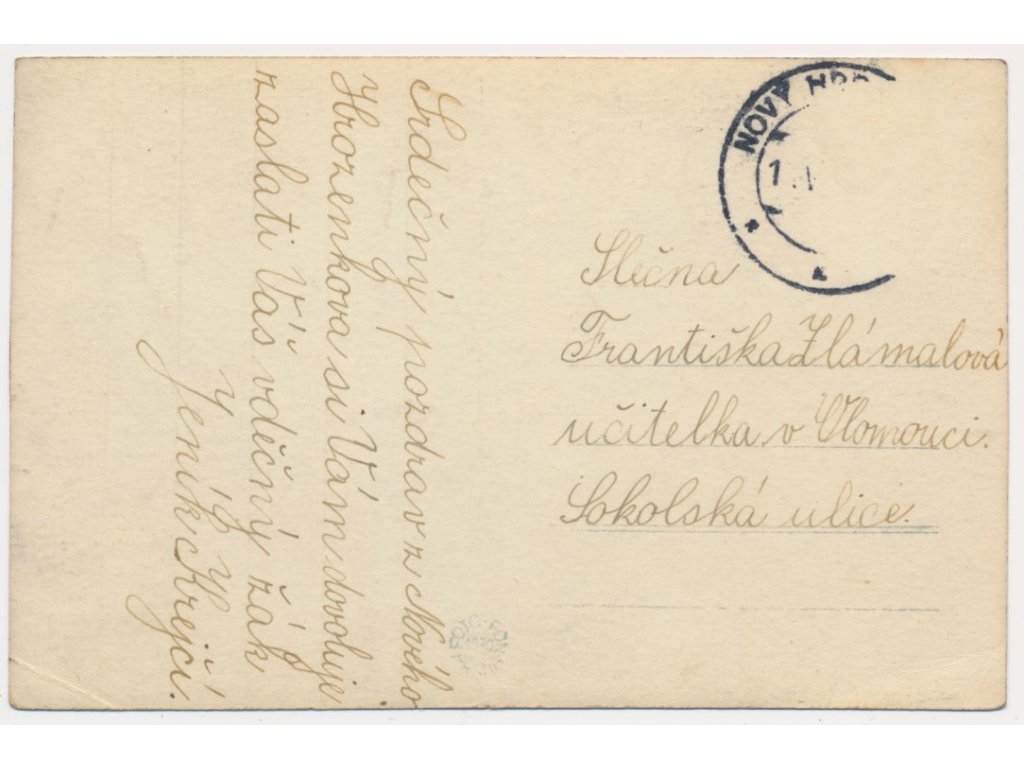 Srdečný pozdrav z Nového
Hrozenkova si Vám dovoluje
zaslati Váš vděčný žák
Jeník Krejčí.
NOVÝ HRO
1
Slečna
Františka Zlámalová
učitelka v Olomouci.
Sokolská ulice.